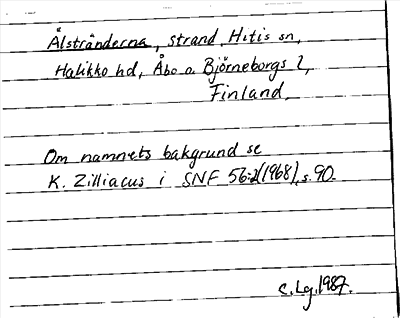 Ålstränderna, strand, Hitis sn,
Halikko hd, Åbo o. Björneborgs l,
Finland.
Om namnets bakgrund se
K. Zilliacus i SNF 56:2(1968), s. 90.
C. Lg. 1987.